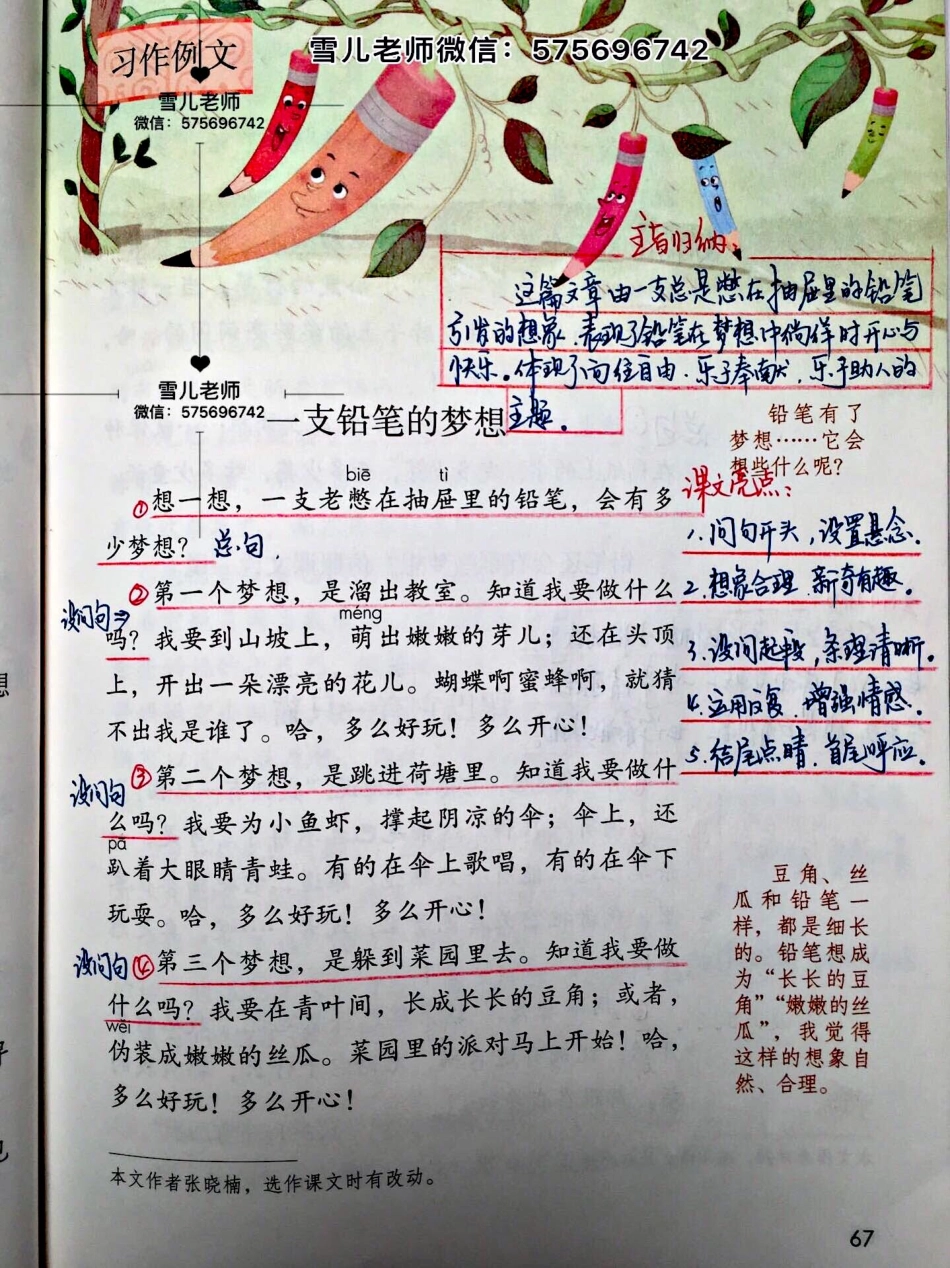 习作例文
雪儿老师微信：575696742
雪儿老师
微信：575696742
主旨归纳：
这篇文章由一支总是憋在抽屉里的铅笔
引发的想象，表现了铅笔在梦想中徜徉时开心与
快乐。体现了向往自由、乐于奉献、乐于助人的
主题。
雪儿老师
微信：575696742
一支铅笔的梦想
铅笔有了
梦想……它会
想些什么呢？
biē tì
①想一想，一支老憋在抽屉里的铅笔，会有多
少梦想？ 总句.
课文亮点：
1.问句开头，设置悬念.
2.想象合理 新奇有趣.
3.设问起段,条理清晰.
4.运用反复，增强情感.
5.结尾点睛.首尾呼应.
设问句⇒
②第一个梦想，是溜出教室。知道我要做什么
méng
吗？我要到山坡上，萌出嫩嫩的芽儿；还在头顶
上，开出一朵漂亮的花儿。蝴蝶啊蜜蜂啊，就猜
不出我是谁了。哈，多么好玩！多么开心！
设问句
③第二个梦想，是跳进荷塘里。知道我要做什
么吗？我要为小鱼虾，撑起阴凉的伞；伞上，还
pā
趴着大眼睛青蛙。有的在伞上歌唱，有的在伞下
玩耍。哈，多么好玩！多么开心！
豆角、丝
瓜和铅笔一
样，都是细长
的。铅笔想成
为“长长的豆
角”“嫩嫩的丝
瓜”，我觉得
这样的想象自
然、合理。
设问句
④第三个梦想，是躲到菜园里去。知道我要做
什么吗？我要在青叶间，长成长长的豆角；或者，
wěi
伪装成嫩嫩的丝瓜。菜园里的派对马上开始！哈，
多么好玩！多么开心！
本文作者张晓楠，选作课文时有改动。
67